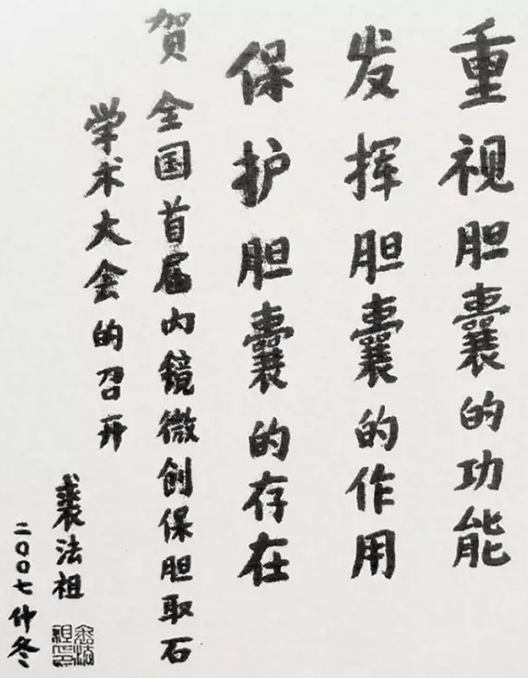 重视胆囊的功能
发挥胆囊的作用
保护胆囊的存在
贺全国首届内镜微创保胆取石
学术大会的召开
裘法祖
二〇〇七仲冬